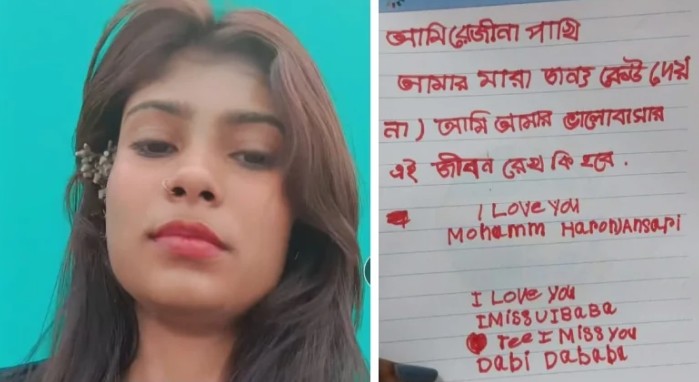 আমি রেজীনা পাখি
আমার মারা জন্য কেউ দেয়
না) আমি আমার ভালোবাসার
এই জীবন রেখ কি হবে.
I Love you
Mohamm HaronAnsari
I Love you
IMISSUIBABA
Tee I MISS you
Dabi Dababa